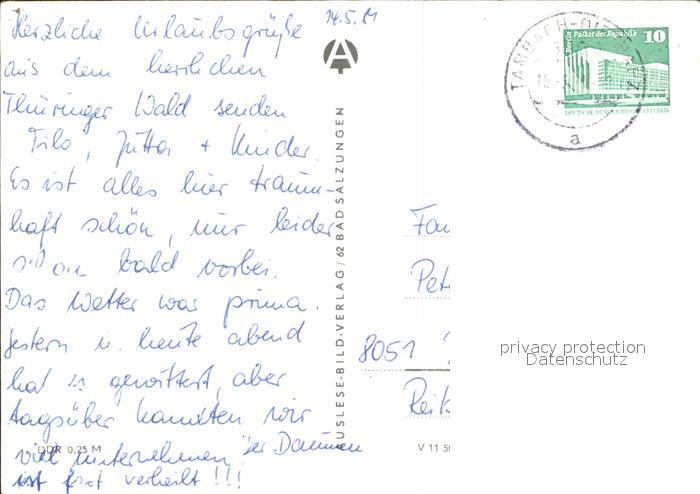 14.5.81
Herzliche Urlaubsgrüße
aus dem herrlichen
Thüringer Wald senden
Tilo, Jutta + Kinder.
Es ist alles hier traum-
haft schön, nur leider
schon bald vorbei.
Das Wetter war prima.
Gestern u. heute abend
hat es gewittert, aber
tagsüber konnten wir
viel unternehmen. Der Daumen
ist fast verheilt!!!
DDR 0,25 M
AUSLESE-BILD-VERLAG / 62 BAD SALZUNGEN
V 11 50
TAMBACH-DIE
15.5
a
Berlin, Palast der Republik
10
DEUTSCHE DEMOKRATISCHE REPUBLIK
Fam
Pet
8051
Reik
privacy protection
Datenschutz